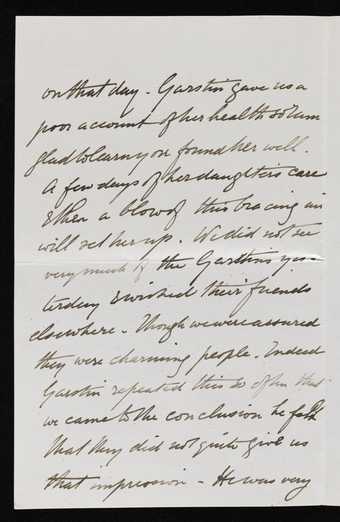 on that day - Garstin gave us a
poor account of her health so I am
glad to learn you found her well.
A few days of her daughter's care
& then a blow of this bracing air
will set her up. We did not see
very much of the Garstins yes-
terday & wished their friends
elsewhere - Though we were assured
they were charming people. Indeed
Garstin repeated this so often that
we came to the conclusion he felt
that they did not quite give us
that impression - He was very